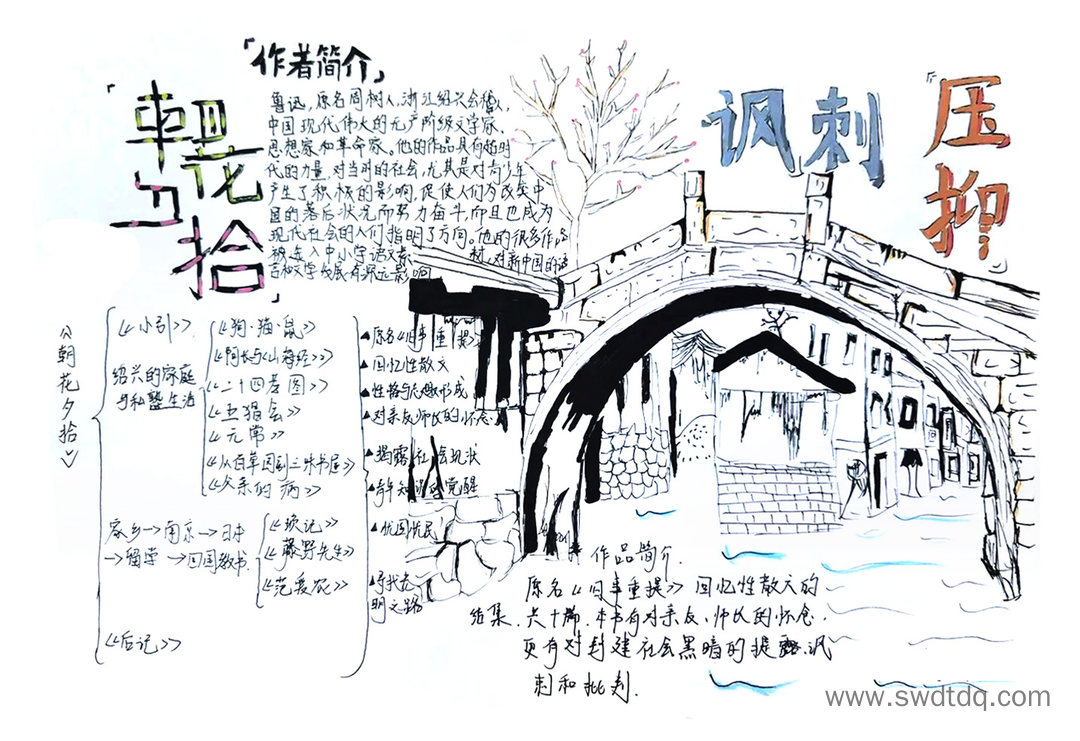 「朝花夕拾」
「作者简介」
鲁迅，原名周树人，浙江绍兴会稽人，
中国现代伟大的无产阶级文学家、
思想家和革命家。他的作品具有超时
代的力量，对当时的社会，尤其是对青少年
产生了积极的影响，促使人们为改变中
国的落后状况而努力奋斗，而且也成为
现代社会的人们指明了方向。他的很多作品
被选入中小学语文素 材，对新中国的语
言和文学发展有深远影响
讽刺
「压抑」
《朝花夕拾》
《小引》
绍兴的家庭
与私塾生活
《狗·猫·鼠》
《阿长与《山海经》》
《二十四孝图》
《五猖会》
《无常》
《从百草园到三味书屋》
《父亲的病》
家乡→南京→日本
→留学→回国教书
《琐记》
《藤野先生》
《范爱农》
《后记》
▲原名《旧事重提》
▲回忆性散文
▲性格与志趣形成
▲对亲友师长的怀念
▲揭露社会现状
▲青年知识 觉醒
▲忧国忧民
▲寻找光
明之路
作品简介
原名《旧事重提》回忆性散文的
结集.共十篇.本书有对亲友、师长的怀念.
更有对封建社会黑暗的提露.讽
刺和批判.
www.swdtdq.com